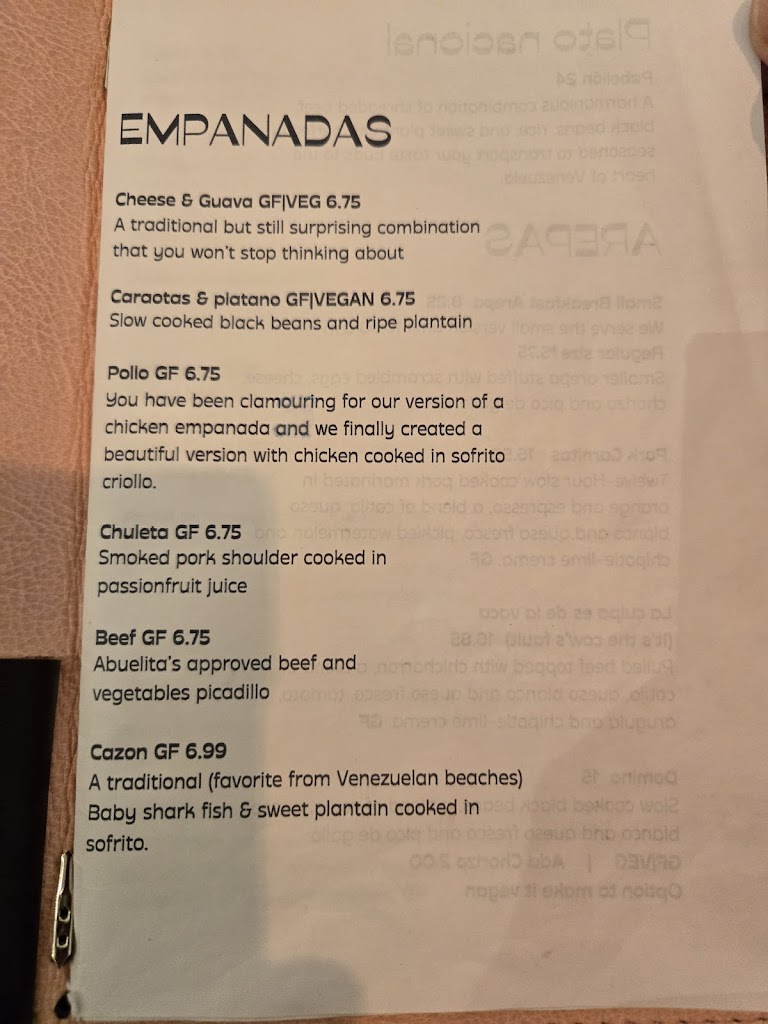 EMPANADAS
Cheese & Guava GF|VEG 6.75
A traditional but still surprising combination
that you won't stop thinking about
Caraotas & platano GF|VEGAN 6.75
Slow cooked black beans and ripe plantain
Pollo GF 6.75
You have been clamouring for our version of a
chicken empanada and we finally created a
beautiful version with chicken cooked in sofrito
criollo.
Chuleta GF 6.75
Smoked pork shoulder cooked in
passionfruit juice
Beef GF 6.75
Abuelita's approved beef and
vegetables picadillo
Cazon GF 6.99
A traditional (favorite from Venezuelan beaches)
Baby shark fish & sweet plantain cooked in
sofrito.